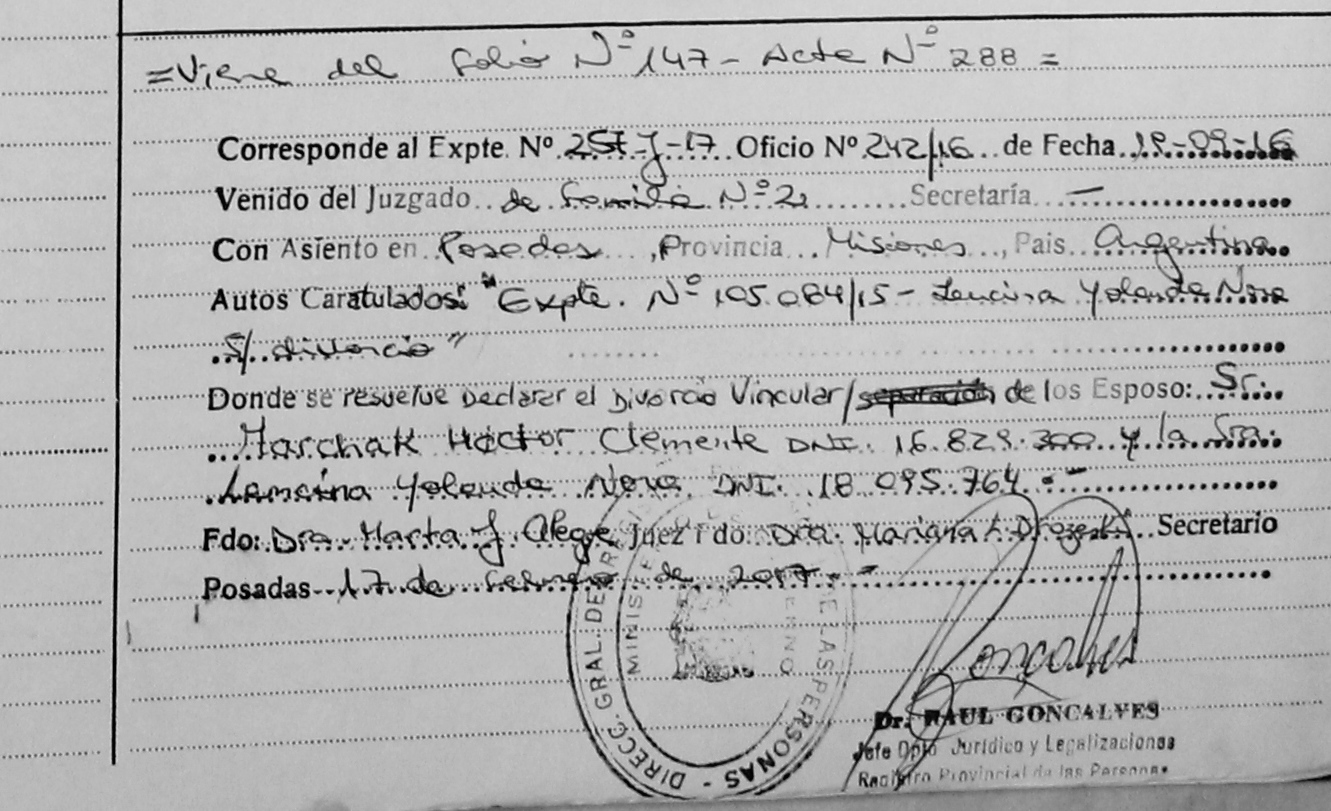 =Viene del folio Nº 147 - Acta Nº 288 =
Corresponde al Expte. Nº 251-J-17 Oficio Nº 242/16 de Fecha 19-09-16
Venido del Juzgado de Familia Nº 2 Secretaría —
Con Asiento en Posadas, Provincia Misiones, Pais Argentina
Autos Caratulados: "Expte. Nº 105.084/15 - Lencina Yolanda Nora
S/ divorcio"
Donde se resuelve Declarar el Divorcio Vincular/separación de los Esposo: Sr.
Marchak Hector Clemente DNI. 16.829.300 y la Sra.
Yolanda DNI. 18.095.764.-
Fdo: Dra. Marta J. Alegre Juez Fdo: Dra. Mariana Secretario
Posadas 17 de febrero de 2017.-
DIRECC. GRAL. DE LAS PERSONAS
MINISTE
Goncalves
Dr. RAUL GONCALVES
Jefe Dpto Jurídico y Legalizaciones
Registro Provincial de las Personas